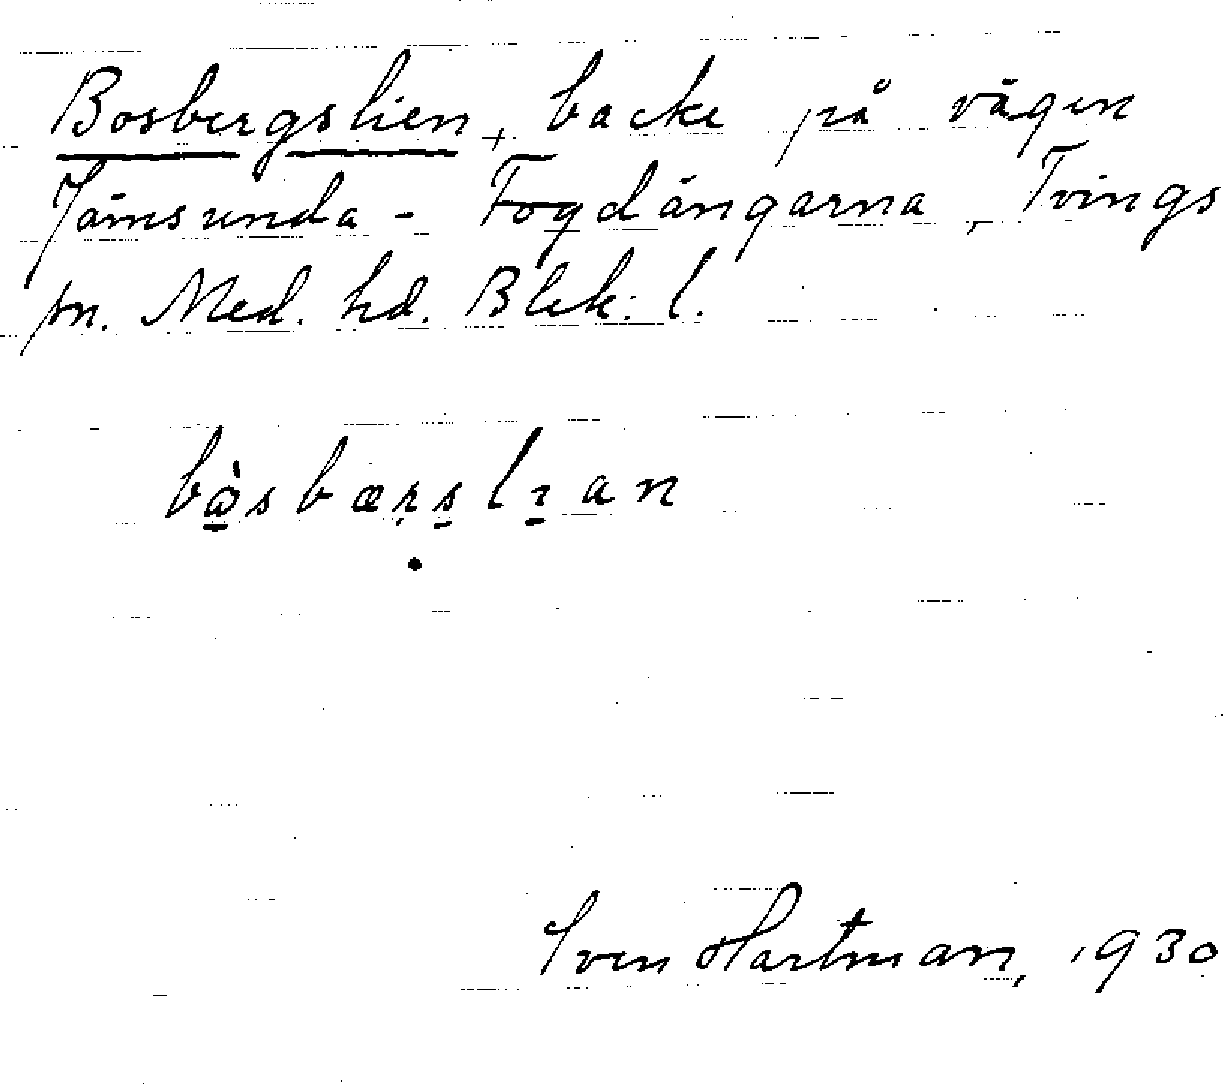 Bosbergslien, backe på vägen
Jämsunda - Fogdängarna, Tvings
sn. Med. hd. Blek. l.
bàsbærslɪan
Sven Hartman, 1930